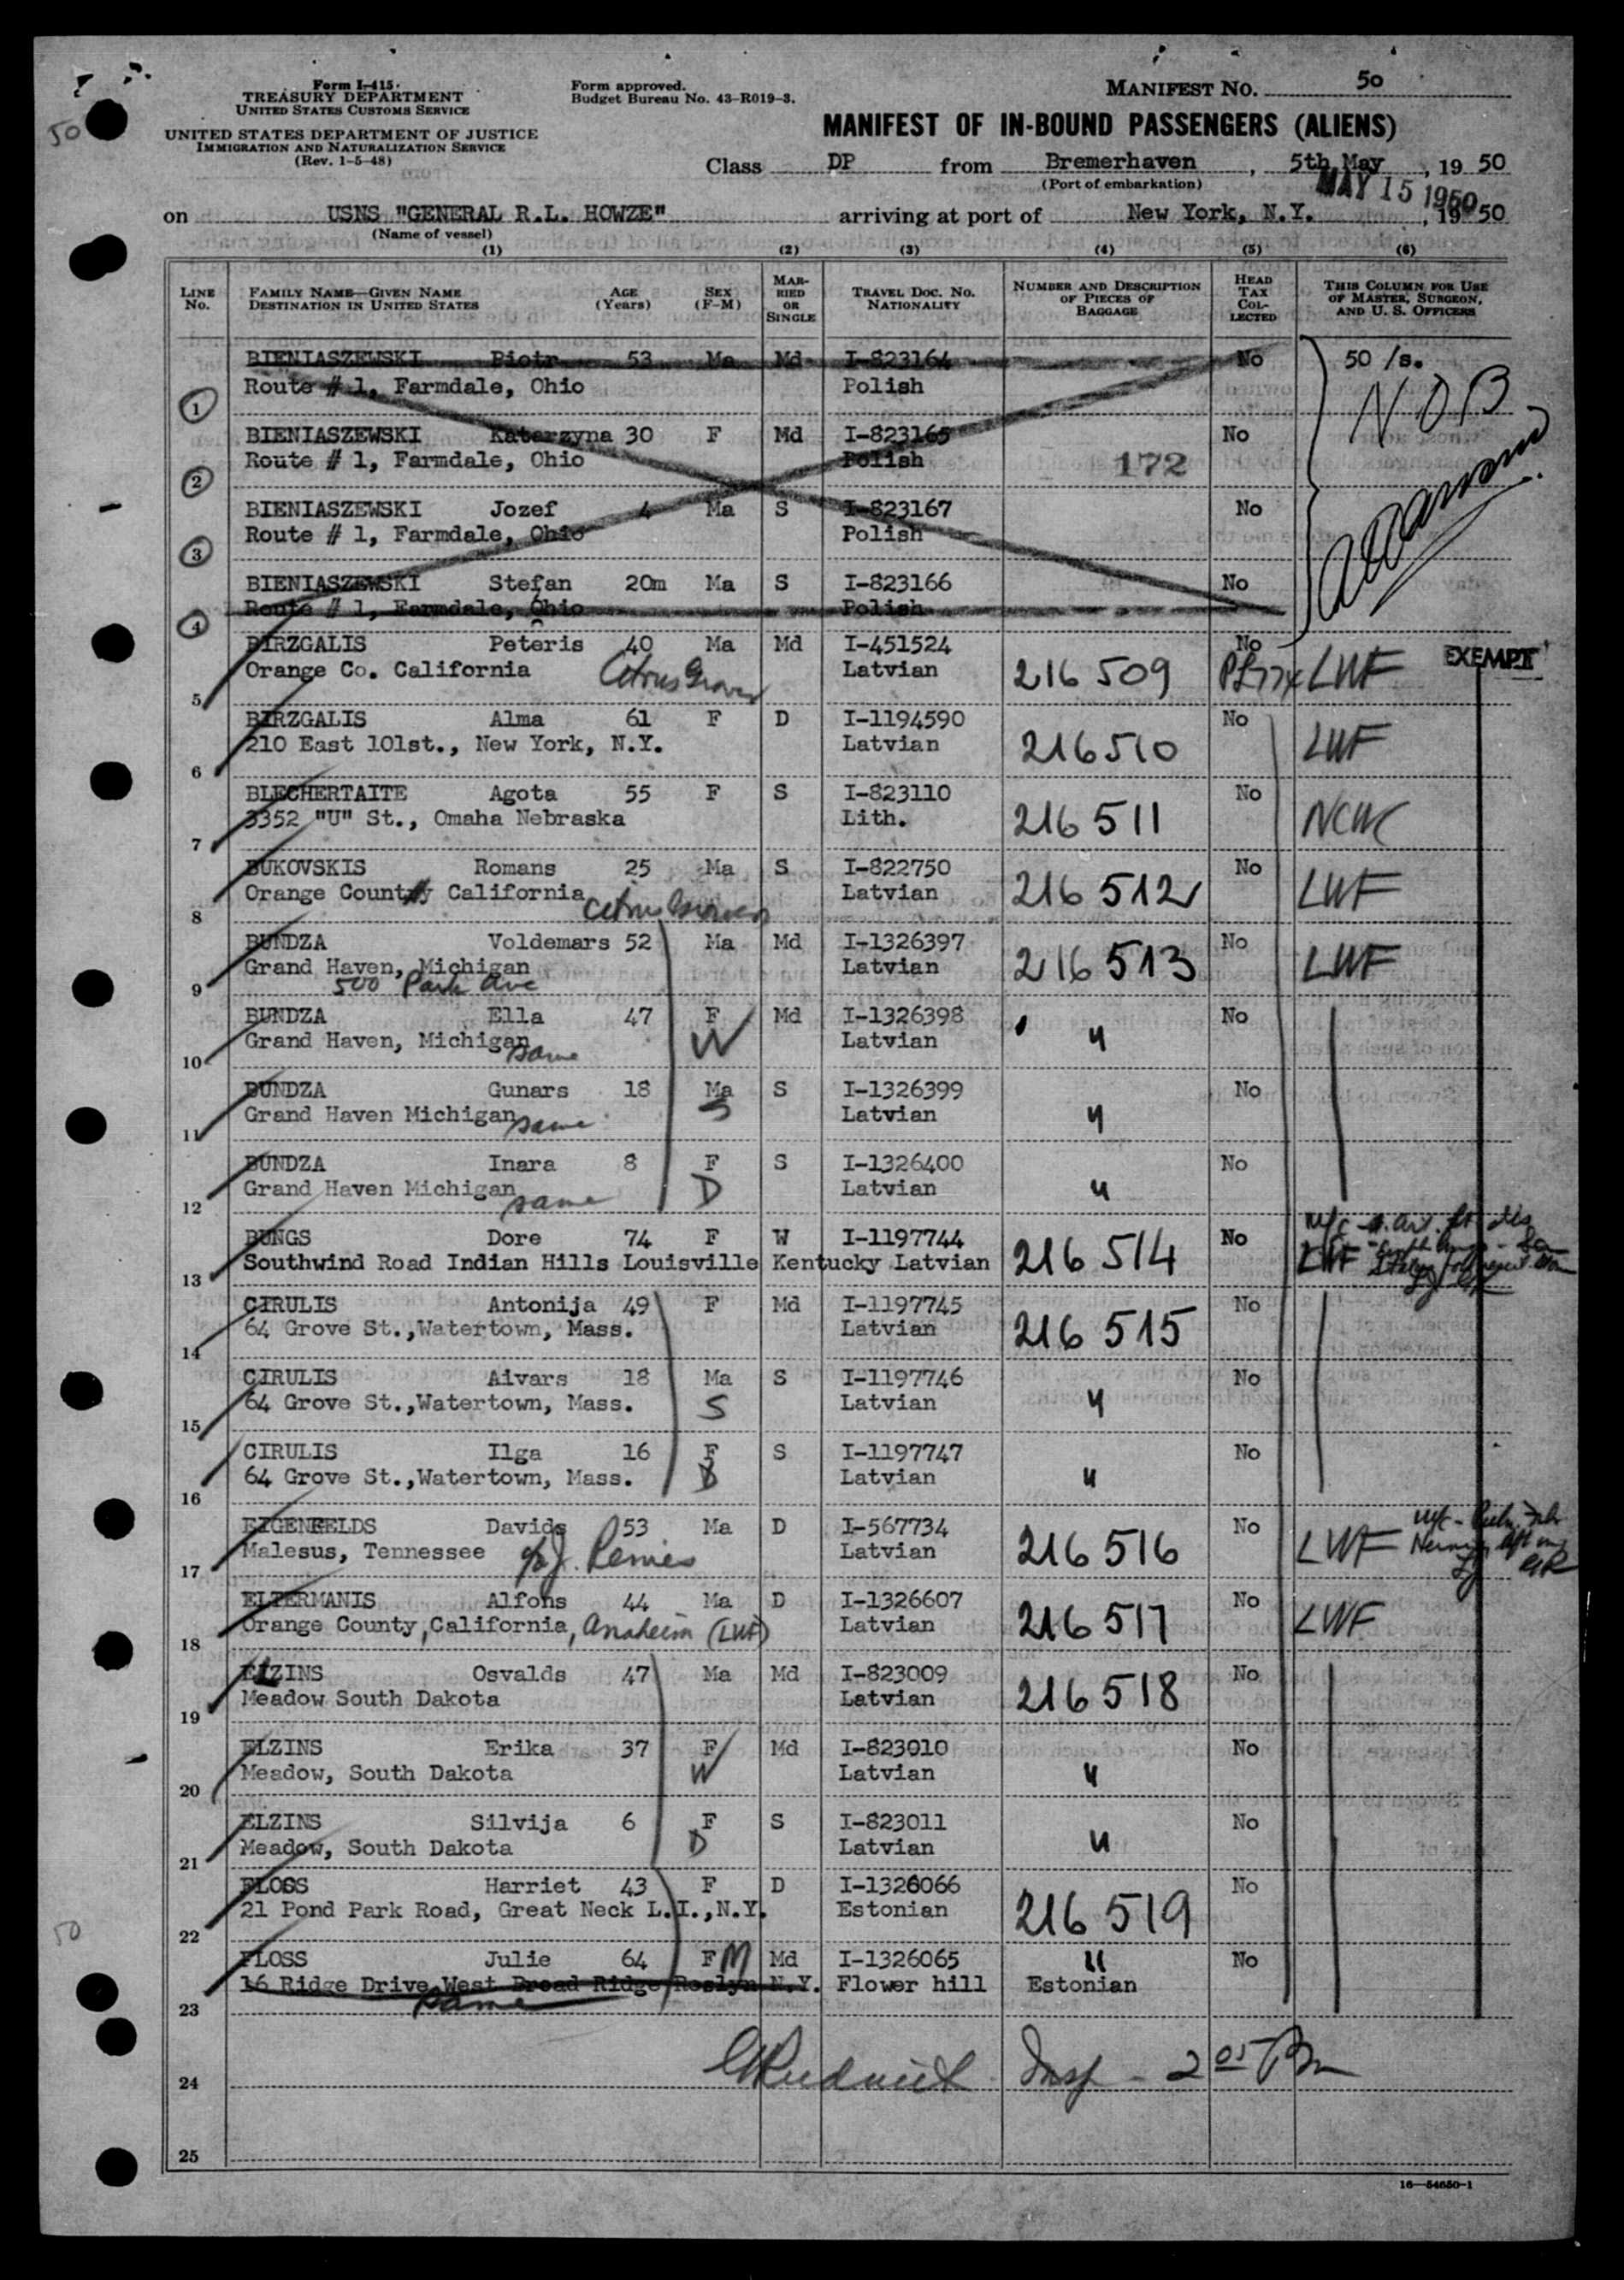 50
Form I-415
TREASURY DEPARTMENT
UNITED STATES CUSTOMS SERVICE
UNITED STATES DEPARTMENT OF JUSTICE
IMMIGRATION AND NATURALIZATION SERVICE
(Rev. 1-5-48)
Form approved.
Budget Bureau No. 43-R019-3.
MANIFEST NO. 50
MANIFEST OF IN-BOUND PASSENGERS (ALIENS)
Class DP from Bremerhaven, 5th May, 1950
(Port of embarkation)
MAY 15 1950
on USNS "GENERAL R.L. HOWZE" arriving at port of New York, N.Y., 1950
(Name of vessel)
(1) (2) (3) (4) (5) (6)
LINE No. FAMILY NAME—GIVEN NAME DESTINATION IN UNITED STATES AGE (Years) SEX (F-M) MARRIED OR SINGLE TRAVEL DOC. NO. NATIONALITY NUMBER AND DESCRIPTION OF PIECES OF BAGGAGE HEAD TAX COLLECTED THIS COLUMN FOR USE OF MASTER, SURGEON, AND U. S. OFFICERS
BIENIASZEWSKI Piotr 53 Ma Md I-823164 No 50 /s.
1 Route # 1, Farmdale, Ohio Polish NOB
BIENIASZEWSKI Katarzyna 30 F Md I-823165 No
2 Route # 1, Farmdale, Ohio Polish 172
BIENIASZEWSKI Jozef 4 Ma S I-823167 No
3 Route # 1, Farmdale, Ohio Polish
BIENIASZEWSKI Stefan 20m Ma S I-823166 No
4 Route # 1, Farmdale, Ohio Polish
BIRZGALIS Peteris 40 Ma Md I-451524 No EXEMPT
5 Orange Co. California Citrus Grower Latvian 216 509 PL774 LWF
BIRZGALIS Alma 61 F D I-1194590 No
6 210 East 101st., New York, N.Y. Latvian 216 510 LWF
BLECHERTAITE Agota 55 F S I-823110 No
7 3352 "U" St., Omaha Nebraska Lith. 216 511 NCWC
BUKOVSKIS Romans 25 Ma S I-822750 No
8 Orange County California Citrus Growers Latvian 216 512 LWF
BUNDZA Voldemars 52 Ma Md I-1326397 No
9 Grand Haven, Michigan Latvian 216 513 LWF
500 Park Ave
BUNDZA Ella 47 F Md I-1326398 No
10 Grand Haven, Michigan same W Latvian "
BUNDZA Gunars 18 Ma S I-1326399 No
11 Grand Haven Michigan same S Latvian "
BUNDZA Inara 8 F S I-1326400 No
12 Grand Haven Michigan same D Latvian "
BUNGS Dore 74 F W I-1197744 No
13 Southwind Road Indian Hills Louisville Kentucky Latvian 216 514 LWF
CIRULIS Antonija 49 F Md I-1197745 No
14 64 Grove St.,Watertown, Mass. Latvian 216 515
CIRULIS Aivars 18 Ma S I-1197746 No
15 64 Grove St.,Watertown, Mass. S Latvian "
CIRULIS Ilga 16 F S I-1197747 No
16 64 Grove St.,Watertown, Mass. D Latvian "
EIGENFELDS Davids 53 Ma D I-567734 No
17 Malesus, Tennessee Latvian 216 516 LWF
ELTERMANIS Alfons 44 Ma D I-1326607 No
18 Orange County, California, Anaheim (LWF) Latvian 216 517 LWF
ELZINS Osvalds 47 Ma Md I-823009 No
19 Meadow South Dakota Latvian 216 518
ELZINS Erika 37 F Md I-823010 No
20 Meadow, South Dakota W Latvian "
ELZINS Silvija 6 F S I-823011 No
21 Meadow, South Dakota D Latvian "
FLOSS Harriet 43 F D I-1326066 No
22 21 Pond Park Road, Great Neck L.I.,N.Y. Estonian 216 519
50
FLOSS Julie 64 F M Md I-1326065 " No
23 16 Ridge Drive West Broad Ridge Roslyn N.Y. Flower hill Estonian
same
24 Insp - 2 05 PM
25
16—54650-1